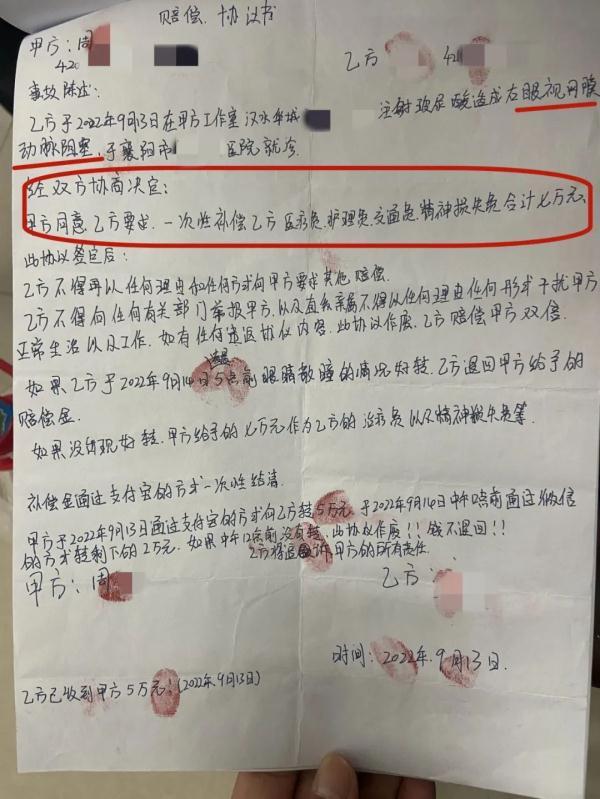 赔偿.协议书
甲方:周
420
乙方 420
事故陈述:
乙方于2022年9月13日在甲方工作室汉水华城 注射玻尿酸造成右眼视网膜
动脉阻塞,于襄阳市 医院就诊.
经双方协商决定:
甲方同意乙方要求.一次性补偿乙方医疗费.护理费.交通费.精神损失费合计七万元.
此协议签定后:
乙方不得再以任何理由和任何方式向甲方要求其他赔偿.
乙方不得向任何有关部门举报甲方.以及直系亲属不得以任何理由任何形式干扰甲方
正常生活以及工作.如有任何违返协议内容.此协议作废.乙方赔偿甲方双倍.
如果乙方于2022年9月14日 5点前眼睛 的情况好转.乙方退回甲方给予的
赔偿金.
如果没出现好转.甲方给予的七万元作为乙方的治疗费以及精神损失费等.
补偿金通过支付宝的方式一次性结清.
甲方于2022年9月13日通过支付宝的方式向乙方转5万元.于2022年9月14日中午 点前通过微信
的方式转剩下的2万元.如果中午12点前没有转.此协议作废!!钱不退回!!
乙方将追 甲方的所有责任.
甲方:周
乙方:
时间:2022年.9月13日.
乙方已收到甲方5万元:(2022年.9月13日)